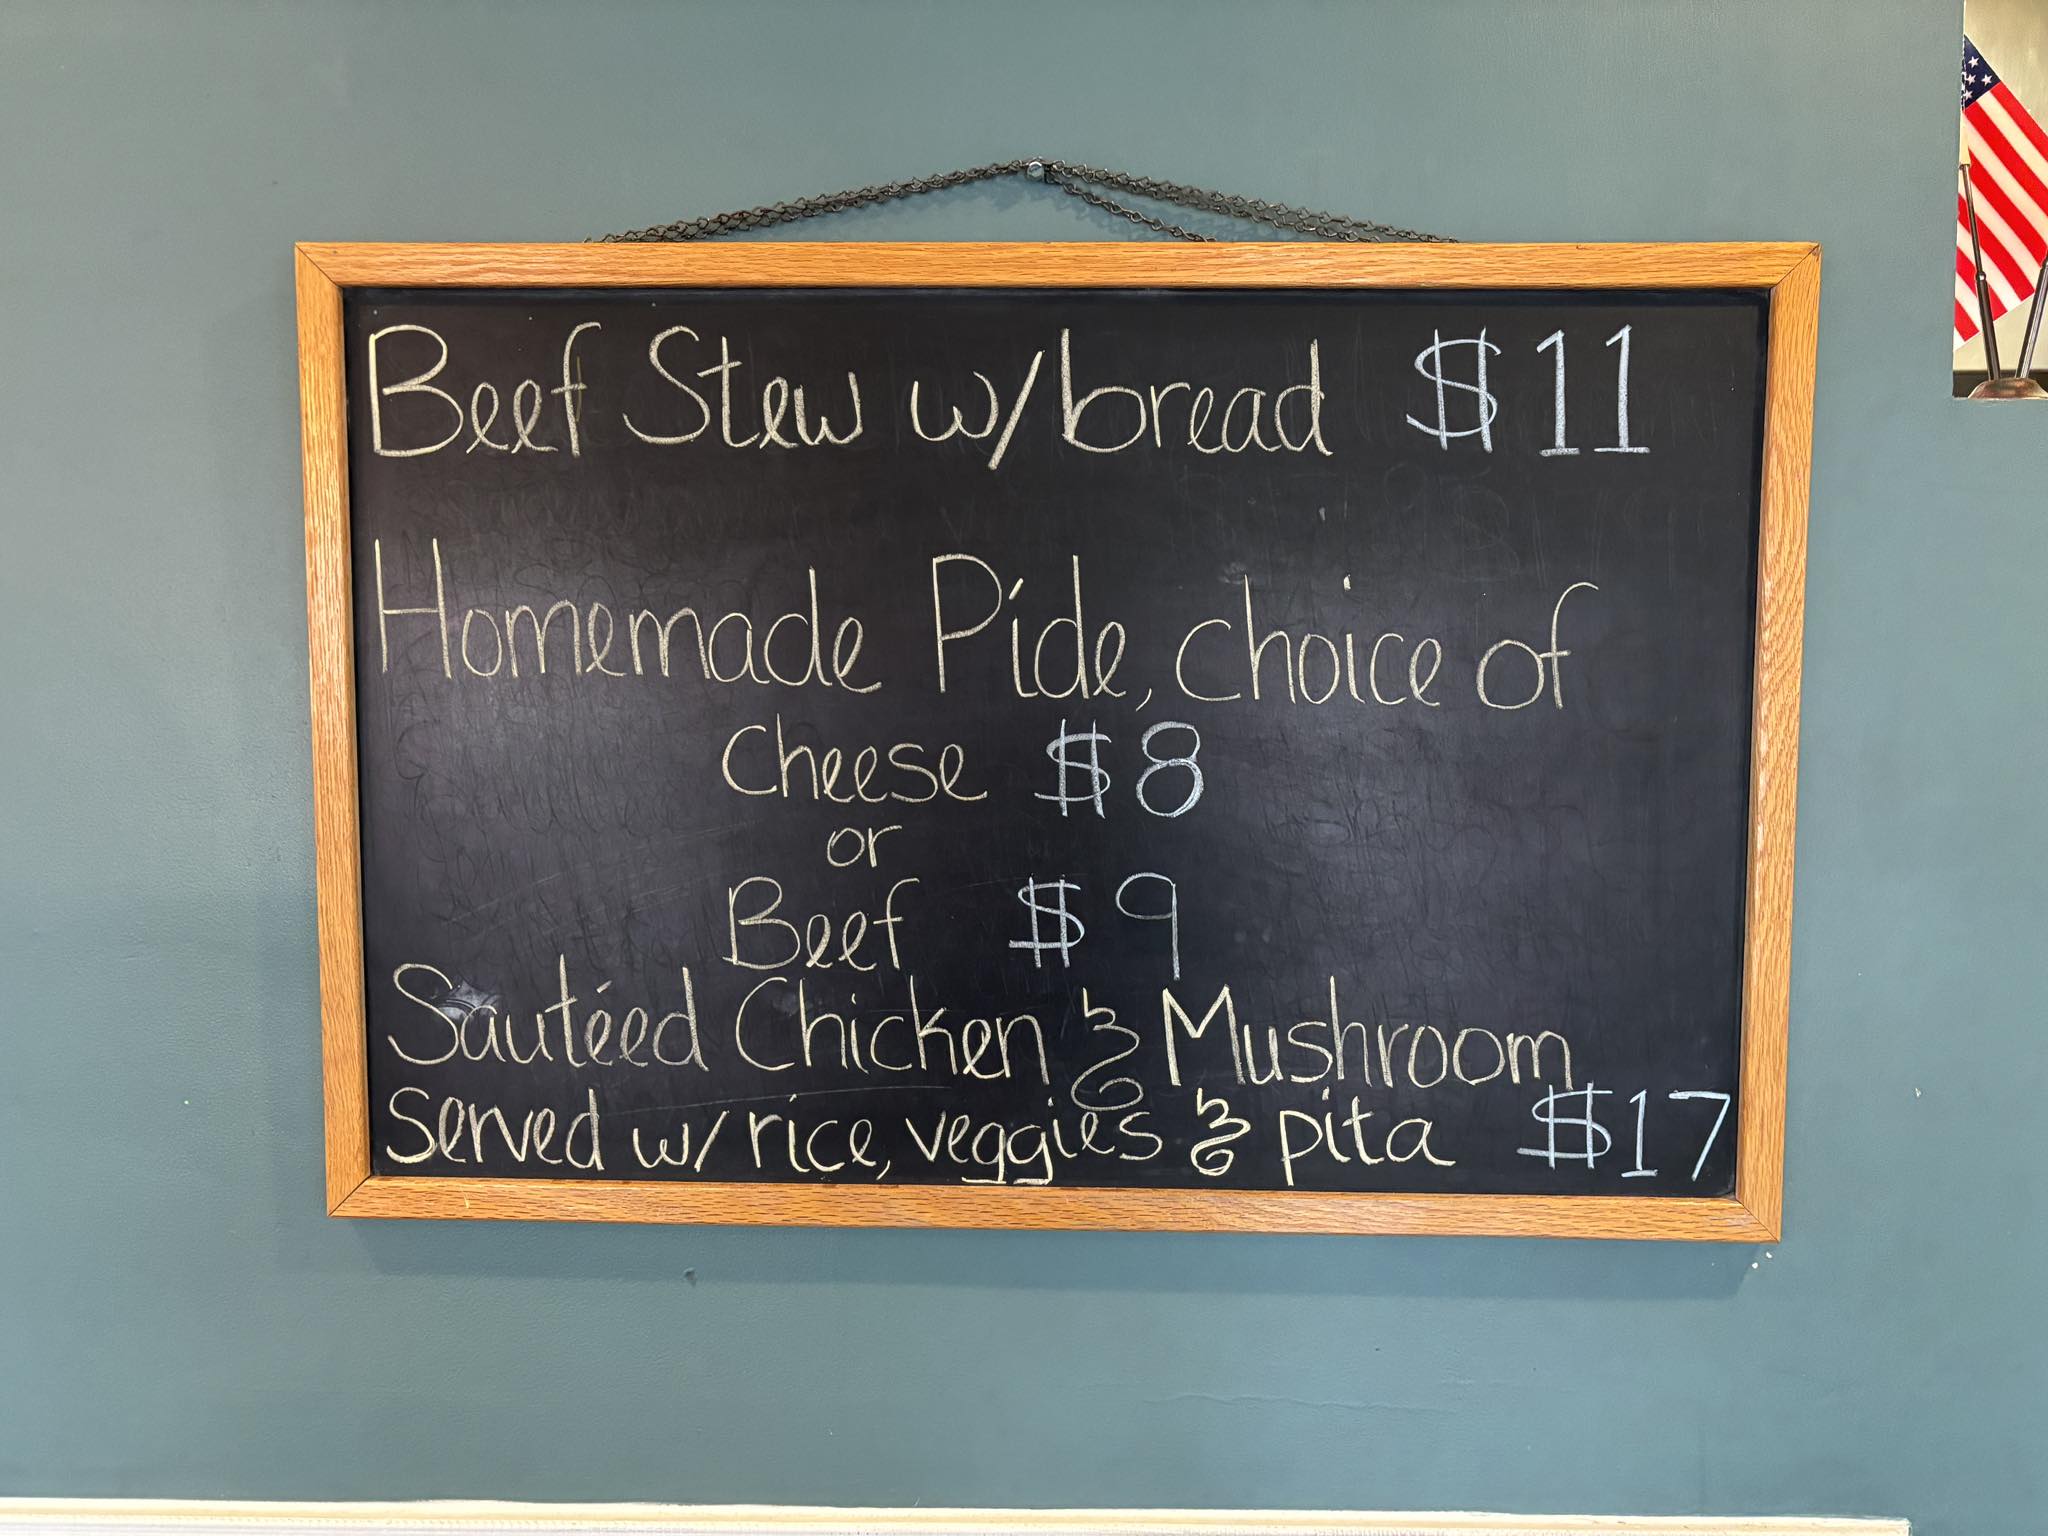 Beef Stew w/bread $11
Homemade Pide, choice of
cheese $8
or
Beef $9
Sautéed Chicken & Mushroom
Served w/ rice, veggies & pita $17